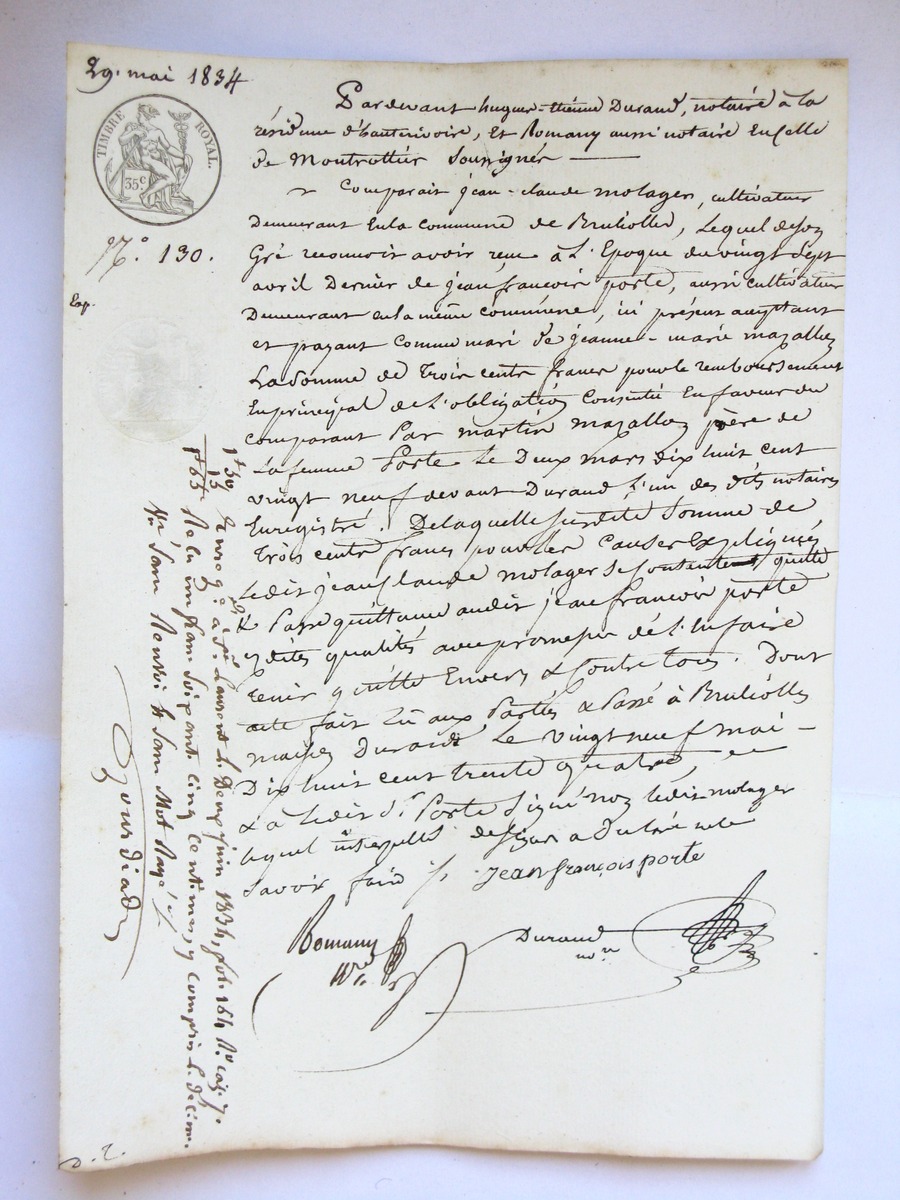 29. mai 1834
TIMBRE ROYAL.
35c
N.o 130.
Exp.
Pardevant hugues-étiènne Durand, notaire à la
résidence d'hauterivoire, Et Romany aussi notaire En celle
de Montrottier soussignés
Comparait jean-claude molager, cultivateur
Demeurant En la commune de Brulliolles, Lequel de son
Gré reconnoit avoir reçu à L'Epoque du vingt Sept
avril Dernier de jean françois porte, aussi cultivateur
Demeurant en la même commune, ici présent acceptant
et payant comme mari de jeanne-marie mazallon
La Somme de Trois cents francs pour le remboursement
En principal de L'obligation Consentie En faveur du
comparant Par martin mazallon père de
La femme Porte Le Deux mars dix huit cent
vingt neuf devant Durand L'un des dits notaires
Enregistré. De laquelle susdite Somme de
Trois cents francs pour les Causes Expliquées
Ledit jean Claude molager se contente quitte
& Passe quittance audit jean françois porte
qualités avec promesse de L'En faire
tenir quitte Envers & Contre tous. Dont
acte fait Lu aux Parties & Passé à Brulliolles
Durand, Le vingt neuf mai
Dix huit cent trente quatre,
& a Ledit Sr Porte Signé non Ledit molager
Lequel interpellé de signer a Declaré ne le
Savoir faire
Jean françois porte
Romany
Nre
Durand
nore
1f 50
15
1f 65
Enreg.é à St Laurent le Deux juin 1834, fol. 164 Ro case 7.
Reçu un franc soixante cinq centimes, y compris le décime
Sans Renvoi & Sans Mot Rayé
D. R.